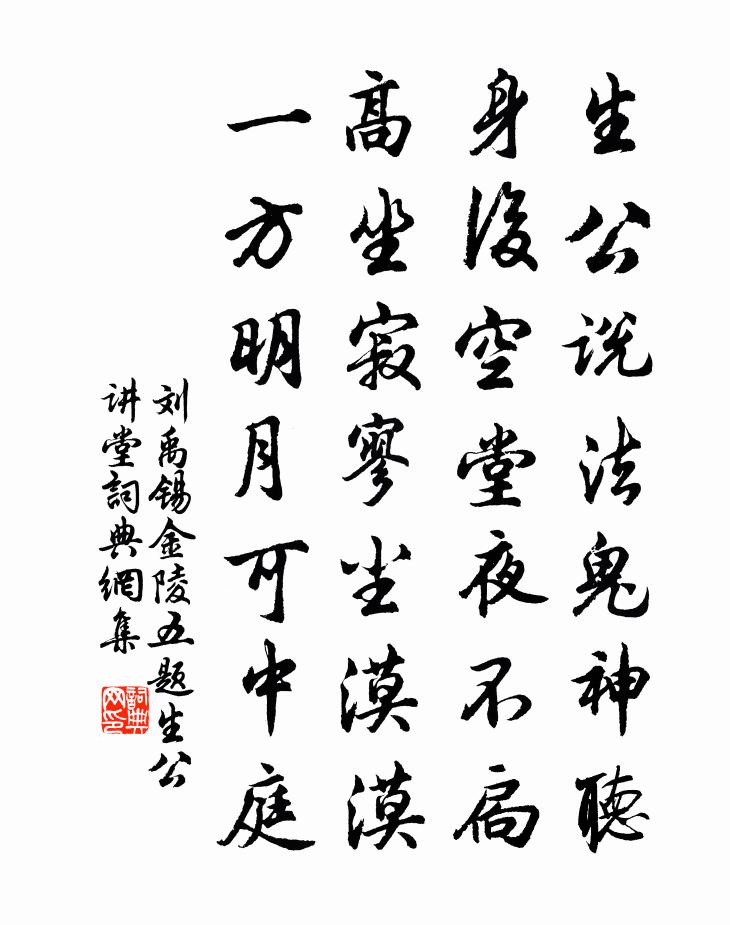 生公説法鬼神聽
身後空堂夜不扃
高坐寂寥尘漠漠
一方明月可中庭
刘禹锡金陵五题生公
讲堂詞典網集
詞典网印